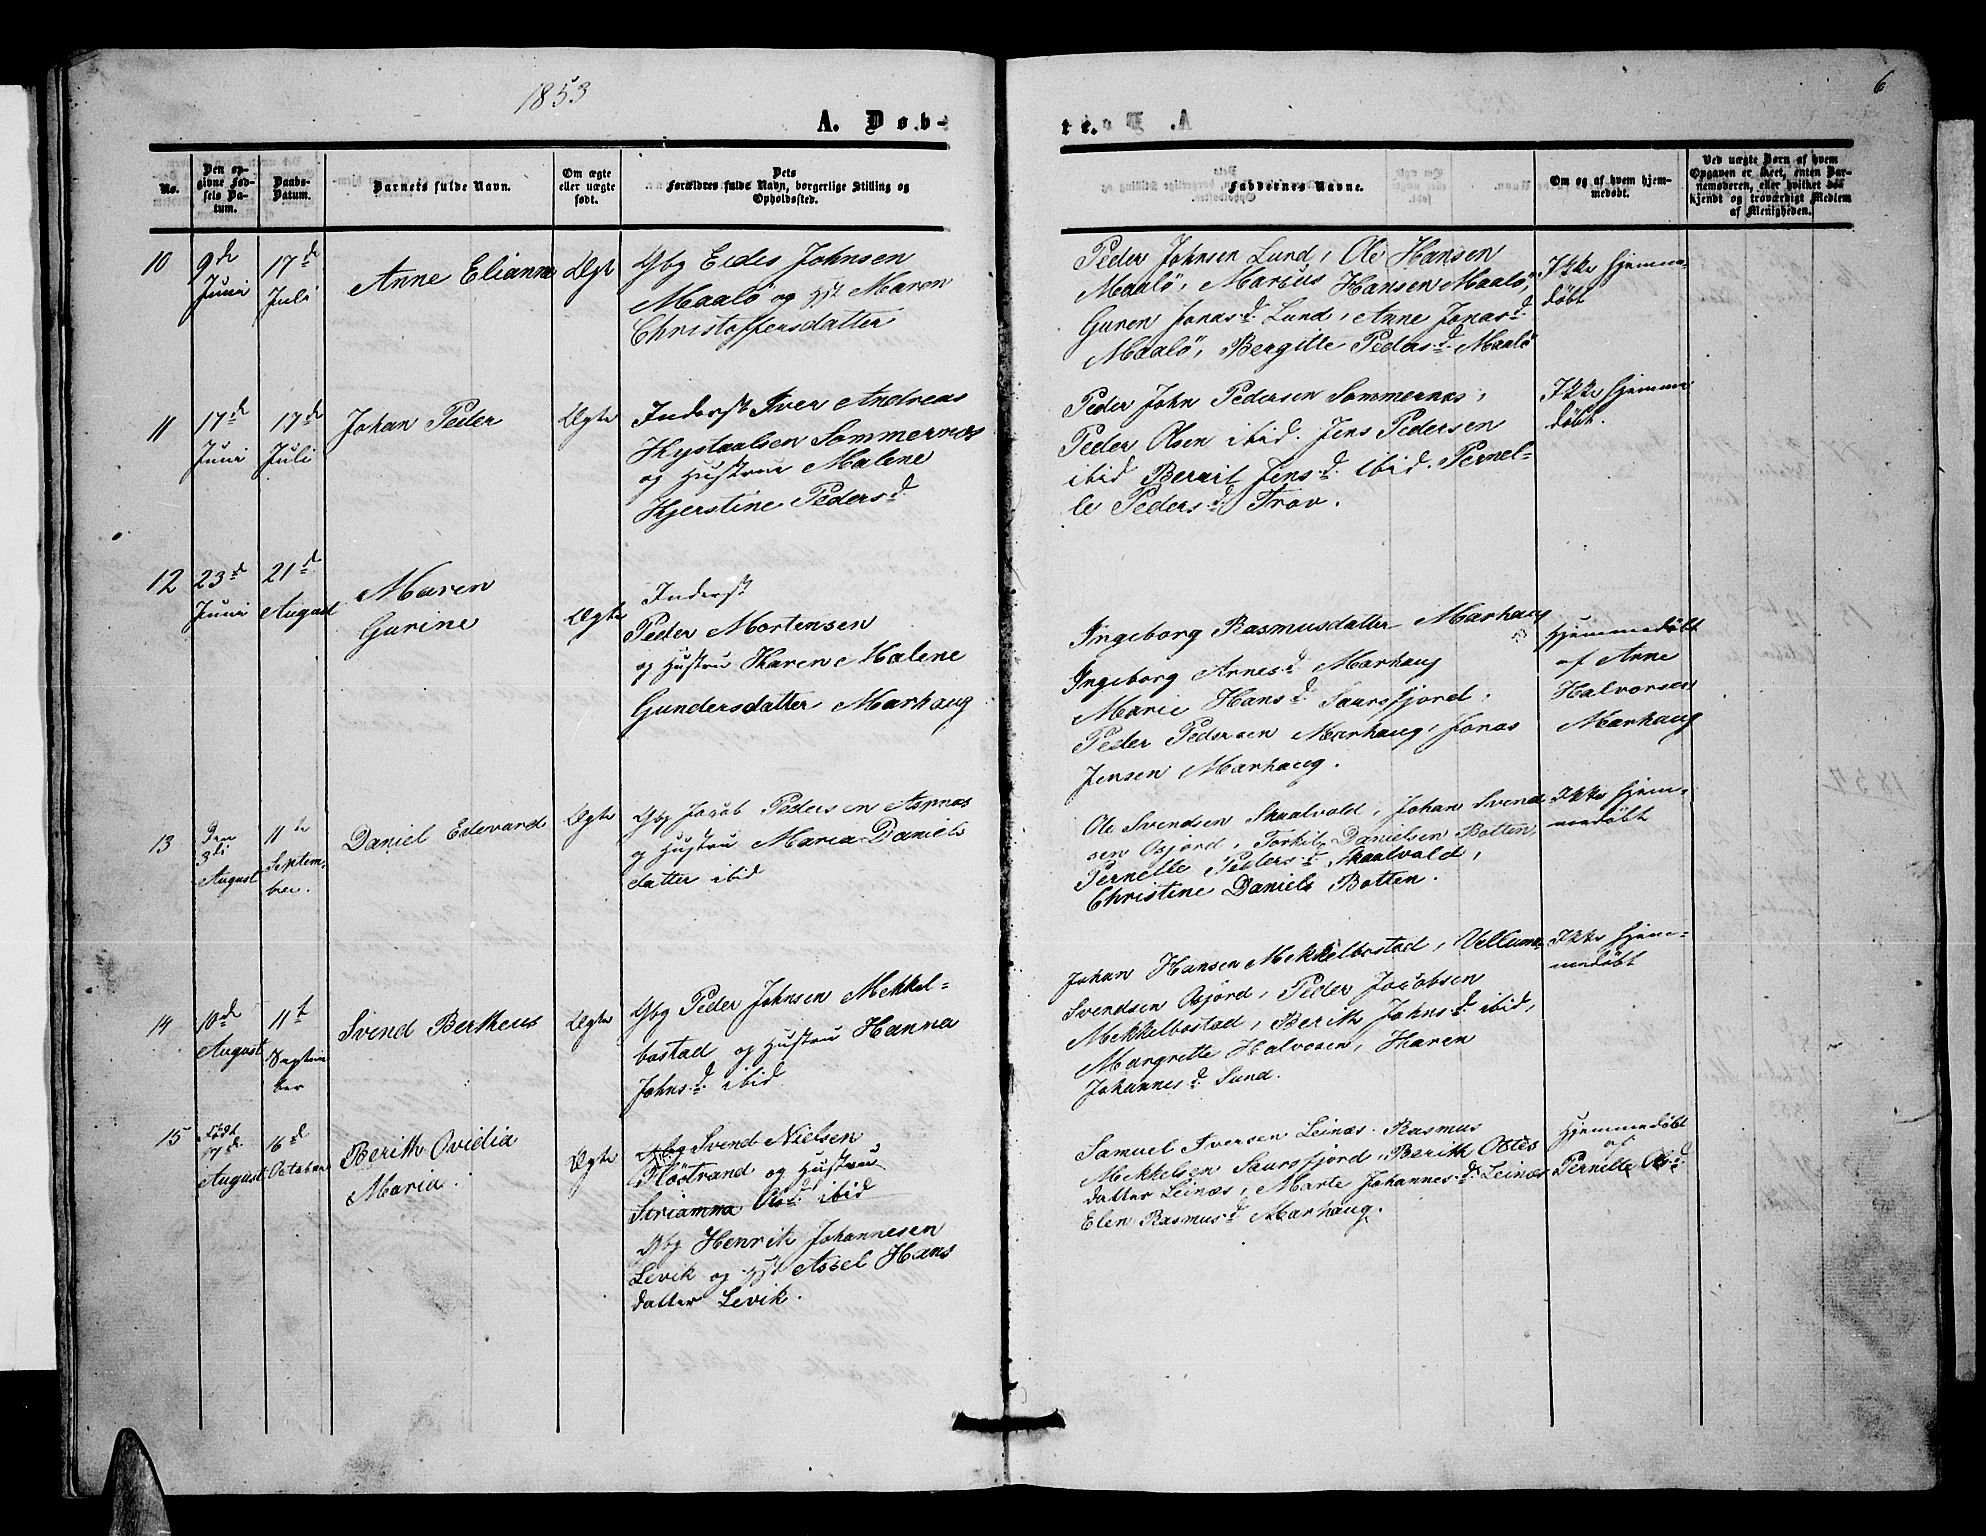 1853
6
A. Døb-
te.
No.
Den op-
givne Fød-
sels Da-
tum.
Daabs-
Datum.
Barnets fulde Navn.
Om ægte
eller uægte
født.
Dets
Forældres fulde Navn, borgerlige Stilling og
Opholdssted.
Faddernes Navne.
Om og af hvem hjem-
medøbt.
Ved uægte Børn af hvem
Opgaven er skeet, enten Bar-
nemoderen, eller hvilket be-
kjendt og troværdigt Medlem
af Menigheden.
10
9de
Juni
17de
Juli
Anne Elianna
Ægte
Gbg Eides Johnsen
Maalö og Hst Maren
Christoffersdatter
Peder Johnsen Lund, Ole Hansen
Maalö, Marius Hansen Maalö,
Guren Jonasd. Lund, Anne Jonasd.
Maalö, Bergitte Pedersd. Maalö
Ikke hjemme-
döbt
11
17de
Juni
17de
Juli
Johan Peder
Ægte
Inderst Iver Andreas
Krystaalsen Sommernæs
og Hustru Malene
Kjerstine Pedersd
Peder John Pedersen Sommernæs,
Peder Olsen ibid. Jens Pedersen
ibid Beruit Jensd. ibid. Pernel-
le Pedersd. Trov.
Ikke hjemme
döbt.
12
23d
Juni
21d
August
Maren
Gurine
Ægte
Inderst
Peder Mortensen
og Hustru Karen Malene
Gundersdatter Marhaug
Ingeborg Rasmusdatter Marhaug
Ingeborg Arnesd. Marhaug
Marie Hansd. Saursfjord.
Peder Pedersen Marhaug, Jonas
Jensen Marhaug.
Hjemmedöbt
af Anne
Halvorsen
Marhaug
13
Den
3die
August
11te
Septem-
ber.
Daniel Edevard
Ægte
Gbg Jacob Pedersen Aspnæs
og Hustru Maria Daniels
datter ibid
Ole Svendsen Skaalvold, Johan Svend
sen Osjord, Torkil Danielsen Botten,
Pernette Pedersd. Skaalvold,
Christine Daniels Botten.
Ikke hjem-
medöbt
14
10de
August
11t
Septem
ber
Svend Bertheus
Ægte
Gbg Peder Johnsen Mekkel-
bostad og Hustru Hanna
Johnsd. ibid
Johan Hansen Mekkelbostad, Vellum
Svendsen Osjord, Peder Jacobsen
Mekkelbostad, Berith Johnsd. ibid,
Margrette Halvosen, Karen
Johannesd. Sund.
Ikke hjem-
medöbt
15
Födt
17d.
August
16d
October
Berith Ovidia
Maria.
Ægte
Gbg Svend Nielsen
Flöstrand og Hustru
Siriamna Olsd. ibid
Gbg Henrik Johannesen
Levik og Hst Assel Hans
datter Levik.
Samuel Iversen Leinæs. Rasmus
Mekkelsen Saursfjord, Berith Ostes
datter Leinæs, Marte Johannesd. Leinæs
Elen Rasmusd Marhaug.
Hjemmedöbt
af
Pernette Olsd.